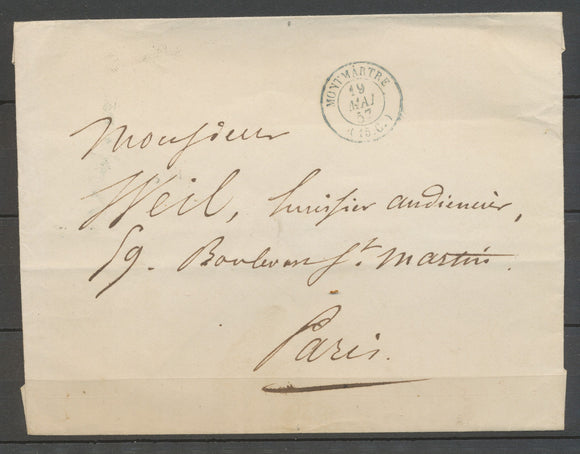 MONTMARTRE
19
MAI
57
(15 C.)
Monsieur
Weil, huissier audiencier,
59. Boulevart St. Martin.
Paris.